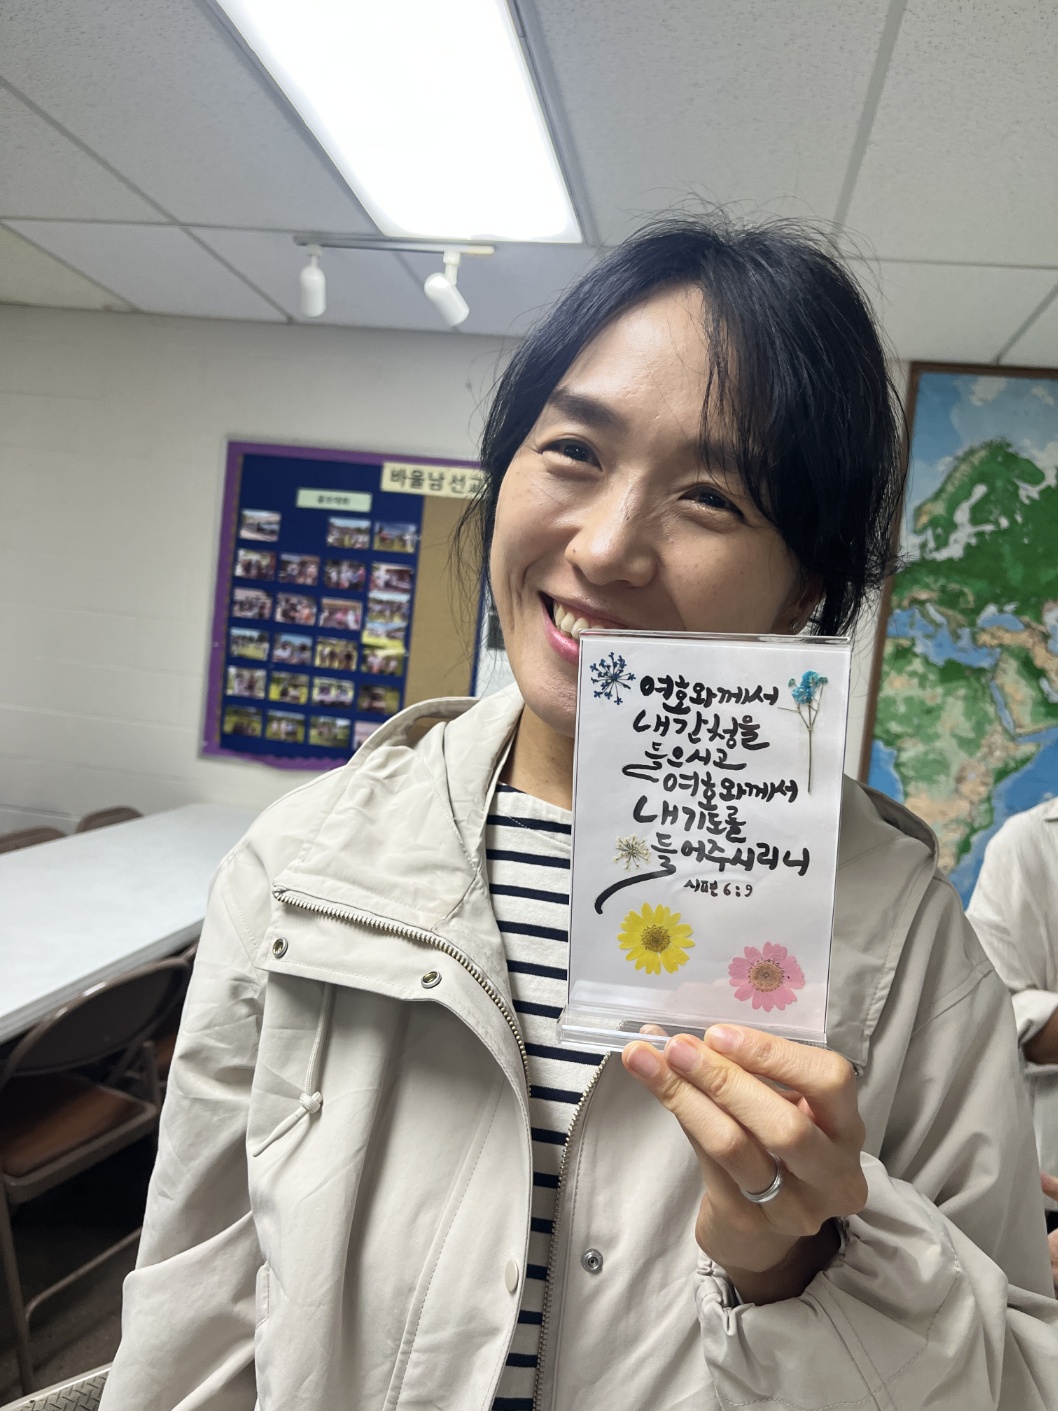 바울남선교
여호와께서
내 간청을
들으시고
여호와께서
내 기도를
들어주시리니
시편 6:9